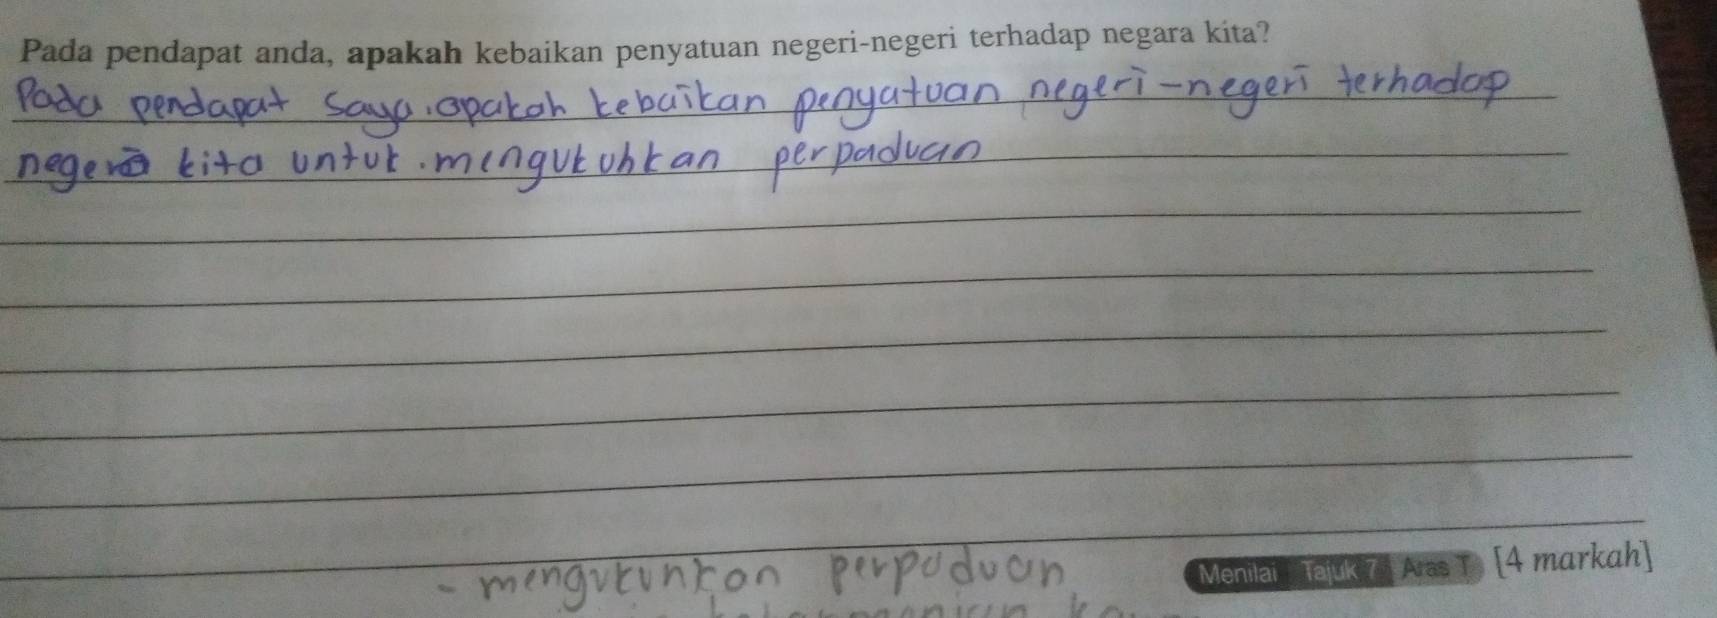 Pada pendapat anda, apakah kebaikan penyatuan negeri-negeri terhadap negara kita?
Pada pendapat saya. apakah kebaikan penyatuan negeri-negeri terhadap
kita untuk. mengukuhkan perpaduan
- mengukunkan perpaduan
Menilai Tajuk 7 Aras T [4 markah]